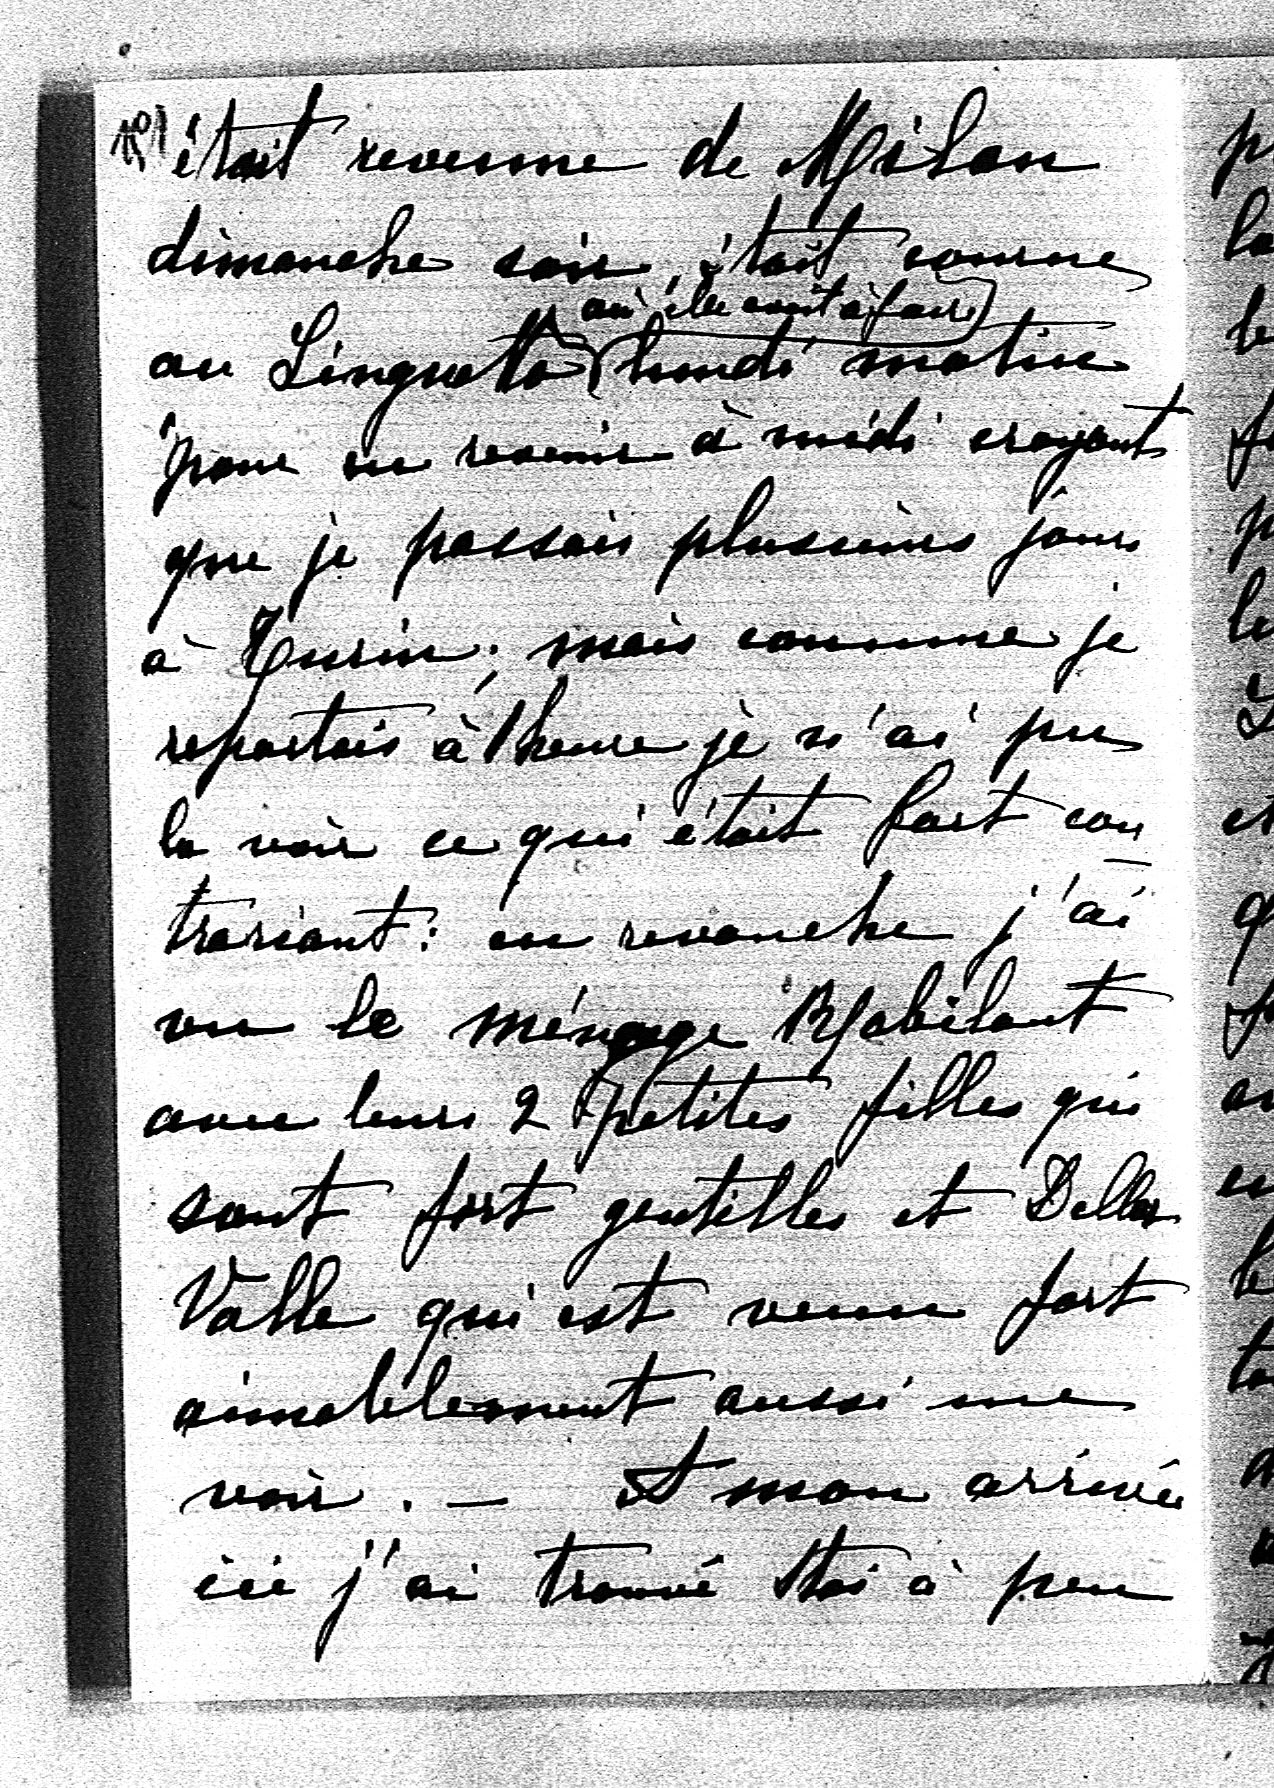 était revenue de Milan
dimanche soir, était comme
où elle avait à faire
au Linguetto lundi matin
pour en revenir à midi croyant
que je passais plusieurs jours
à Turin; mais comme je
repartais à 1 heure je n'ai pu
la voir ce qui était fort con
trariant: en revanche j'ai
vu le ménage Robilant
avec leurs 2 petites filles qui
sont fort gentilles et Della
Valle qui est venu fort
aimablement aussi me
voir. — A mon arrivée
ici j'ai trouvé Stoi à peu